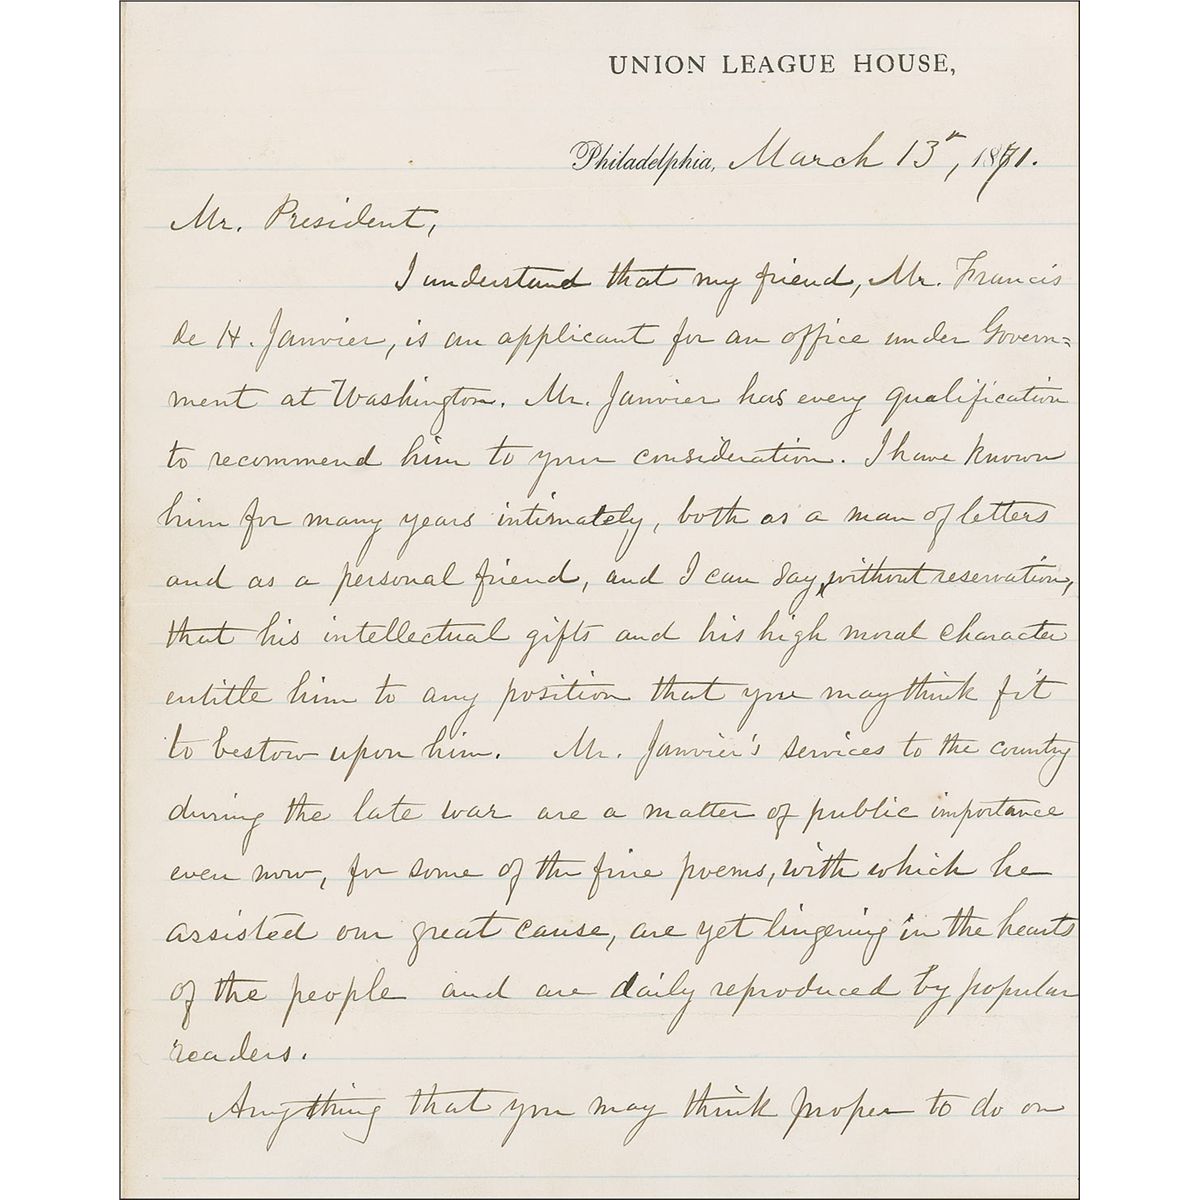 UNION LEAGUE HOUSE,
Philadelphia, March 13th, 1871.
Mr. President,
I understand that my friend, Mr. Francis
de H. Janvier, is an applicant for an office under Govern=
ment at Washington. Mr. Janvier has every qualification
to recommend him to your consideration. I have known
him for many years intimately, both as a man of letters
and as a personal friend, and I can say, without reservation,
that his intellectual gifts and his high moral character
entitle him to any position that you may think fit
to bestow upon him. Mr. Janvier's services to the country
during the late war are a matter of public importance
even now, for some of the fine poems, with which he
assisted our great cause, are yet lingering in the hearts
of the people and are daily reproduced by popular
readers.
Anything that you may think proper to do on